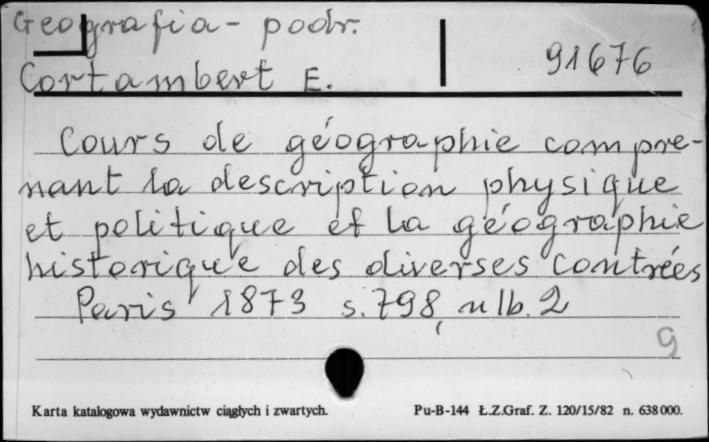 Geografia - podr.
91676
Cortambert E.
Cours de géographie compre-
nant la description physique
et politique et la géographie
historique des diverses contrées
Paris 1873 s. 798, nlb. 2
9
Karta katalogowa wydawnictw ciągłych i zwartych.
Pu-B-144 Ł.Z.Graf. Z. 120/15/82 n. 638000.